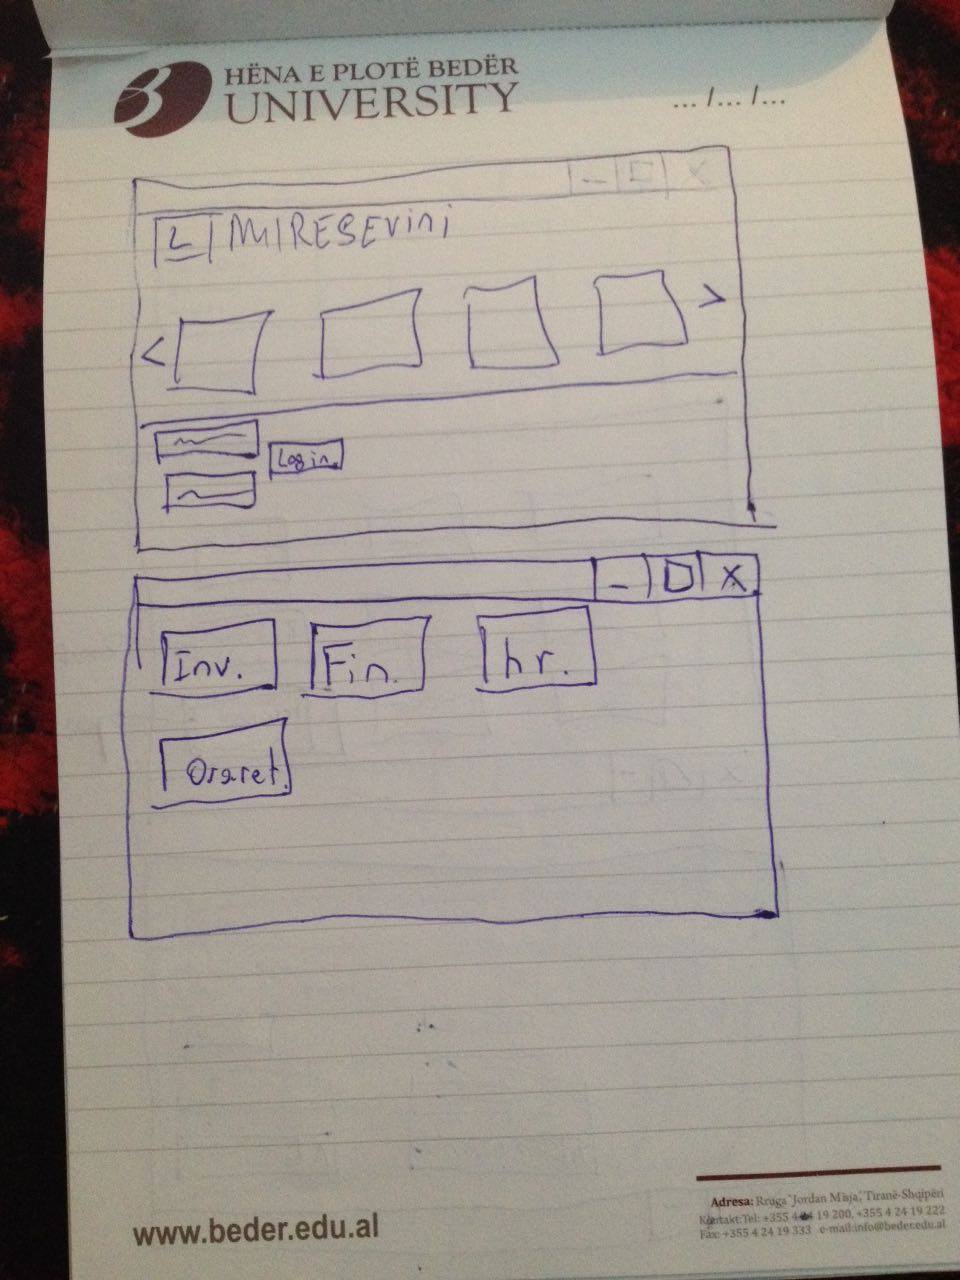 HËNA E PLOTË BEDËR
UNIVERSITY
... /... /...
L MIRESEVINI
< >
Login
_ X
Inv. Fin. hr.
Oraret.
www.beder.edu.al
Adresa: Rruga "Jordan Misja", Tiranë-Shqipëri
Kontakt:Tel: +355 4 24 19 200, +355 4 24 19 222
Fax: +355 4 24 19 333 e-mail:info@beder.edu.al